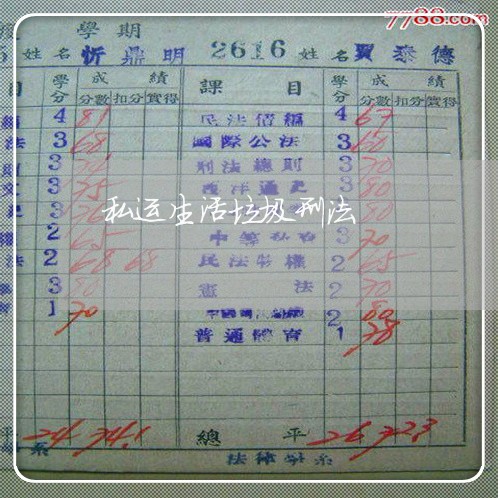 7788.com
學期
姓名 忻鼎明 2616 姓名 賈泰德
目 學分 成績 課目 學分 成績
分數 扣分 實得 分數 扣分 實得
4 81 民法債編 4 67
法 3 68 國際公法 3 60
3 刑法總則 3 70
3 75 西洋通史 3 80
3 80
私运生活垃圾刑法
2 65 3 70
法 2 68 68 民法物權 2 65
3 80 憲法 2 70
1 70 2 80
普通體育 1 78
平 24 74.1 總平 26 72.3
系 法律學系